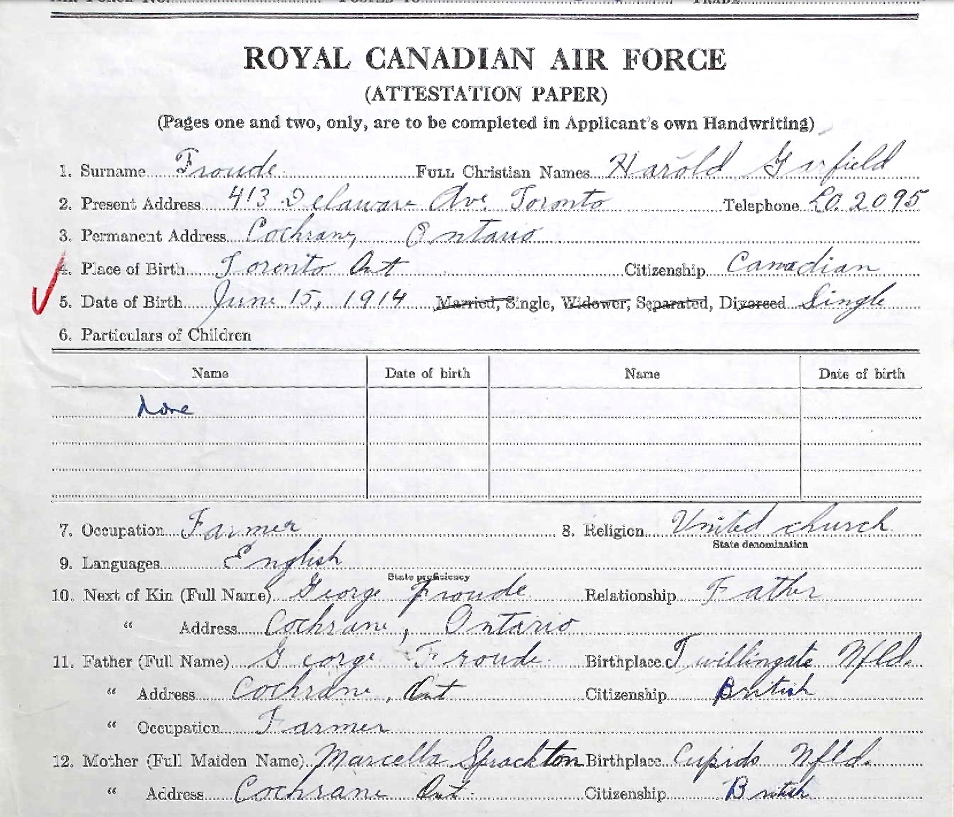 ROYAL CANADIAN AIR FORCE
(ATTESTATION PAPER)
(Pages one and two, only, are to be completed in Applicant's own Handwriting)
1. Surname Froude Full Christian Names Harold Garfield
2. Present Address 413 Delaware Ave Toronto Telephone LO. 2095
3. Permanent Address Cochrane, Ontario
4. Place of Birth Toronto Ont Citizenship Canadian
5. Date of Birth June 15, 1914 Married, Single, Widower, Separated, Divorced Single
6. Particulars of Children
Name Date of birth Name Date of birth
None
7. Occupation Farmer 8. Religion United church
State denomination
9. Languages English
State proficiency
10. Next of Kin (Full Name) George Froude Relationship Father
" Address Cochrane, Ontario
11. Father (Full Name) George Froude Birthplace Twillingate Nfld.
" Address Cochrane, Ont Citizenship British
" Occupation Farmer
12. Mother (Full Maiden Name) Marcella Sprackton Birthplace Cupids Nfld.
" Address Cochrane Ont. Citizenship British